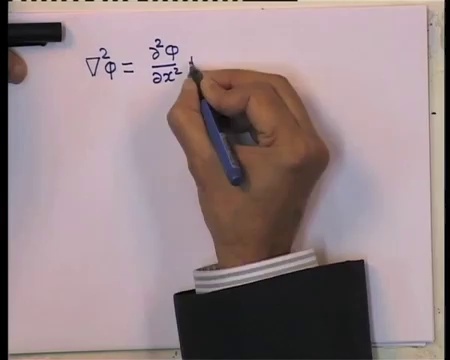 ∇²φ = ∂²φ/∂x² +